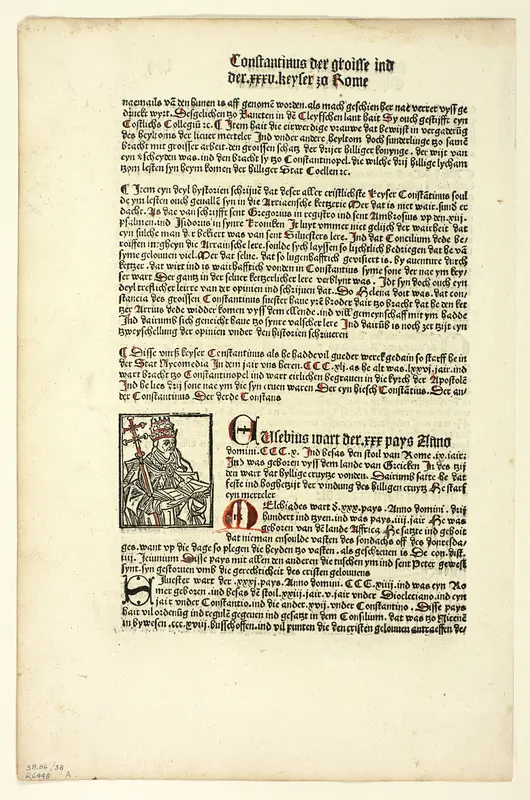 Constantinus der groisse ind
der.xxxv.keyser zo Rome
naemails vā den hunen is aff genomē worden. als mach geschien her nae verret vyss ge
druckt wyrt. Desgelichen tzo Xancten in dē Cleyfschen lant hait Sy ouch gestifft eyn
Costlichs Collegiū zc. ¶ Item hait die eirwerdige vrauwe dat bewijst in vergaderūg
des heyltoms der lieuer merteler Ind under andere heyltom doch sunderlinge tzo samē
bracht mit groisser arbeit. den groissen schatz der drijer billiger konynge. der wijt van
eyn āscheyden was. ind den bracht sy tzo Constantinopel. die wilche drij billige lycham
tzom lesten syn heym komen der billiger Stat Coellen zc.
¶ Item eyn deyl hystorien schrijuē dat deser aller cristlichste Keyser Constātinus soul
de ym lesten ouch geuallē syn in die Arriaensche ketzerie Mer dat is niet wair. sund er
dacht. As dae van schrifft sent Gregorius in registro ind sent Ambrosius vp den.xiij.
psalmen. ind Isidorus in synre Kroniken It luyt ymmer niet gelijch der wairheit dat
eyn sulche man d'e bekeert was van sent Siluesters lere. Ind dat Concilium dede be
roiffen in:gheyn die Arrainsche lere. soulde sych layssen so lijchtlich bedriegen dat he vā
syme gelouuen viel. Mer dat selue. dat so lugenhafftich gevisiert is. by auenture durch
ketzer. dat wirt ind is wairhafftich vonden in Constantius syme sone der nae ym key:
ser wart Der gantz in der seluer ketzerlicher lere verblynt was. Idt syn doch ouch eyn
deyl treflicher leirre van der opinien ind schrijuen dat. Do Helena doit was. dat con-
stancia des groissen Constantinus suester haue yre broder dair tzo bracht dat he den ket
tzer Arrius dede widder komen vyss dem ellende. ind vill gemeynschaff mit ym hadde
Ind dairumb sich genoricht haue tzo synre valscher lere Ind dairūb is noch zer tzijt eyn
tzweyschellung der opinien under den historien schriueren
¶ Disse vurss keyser Constantinus als he hadde vil gueder werck gedain so starff he in
der Stat Nycomedia In dem jair vns heren. CCC.xlj. as he alt was.lxxvj.jair. ind
wart bracht tzo Constantinopel ind wart eirlichen begrauen in die kyrch der Apostolē
Ind he lies drij sone nae ym die syn eruen waren. Der eyn hiesch Constātius. Der an-
der Constantinus Der derde Constans
EUsebius wart der.xxx pays Anno
domini.CCC.x. Ind besas den stoil van Rome.ix.iair:
Ind was geboren vyss dem lande van Griecken In des tzij
den wart dat hyllige cruytze vonden. Dairumb satte he dat
feste ind hoghetzijt der vindung des billigen cruytz He starff
eyn merteler
MElchiades wart d.xxx.pays. Anno domini. drij
hundert ind tzyen. ind was pays.iiij.jair He was
geboren van dē lande Affrica He satzte ind gehoit
dat nieman ensoulde vasten des sondachs off des donresda-
ges. want vp die dage so plegen die heyden tzo vasten. als geschreuen is De con. dist.
iiij. Ieiunium Disse pays mit allen den anderen die tuschen ym ind sent Peter gewest
synt. syn gestoruen vmb die gerechticheit des cristen gelouuens
SIluester wart der .xxxj. pays. Anno domini.CCC.xiiij. ind was eyn Ro
mer geboren. ind besas dē stoil.xxiij.jair.v.jair vnder Diocletiano. ind eyn
jair vnder Constantio. ind die ander.xvij.vnder Constantino. Disse pays
hait vil ordenūg ind regulē gegeuen ind gesatzt in dem Consilium. dat was tzo Nicenē
in bywesen .ccc.xviij. busschoffen. ind vil punten die den cristen gelouuen antraeffen de/
38.86/38
R6448 A